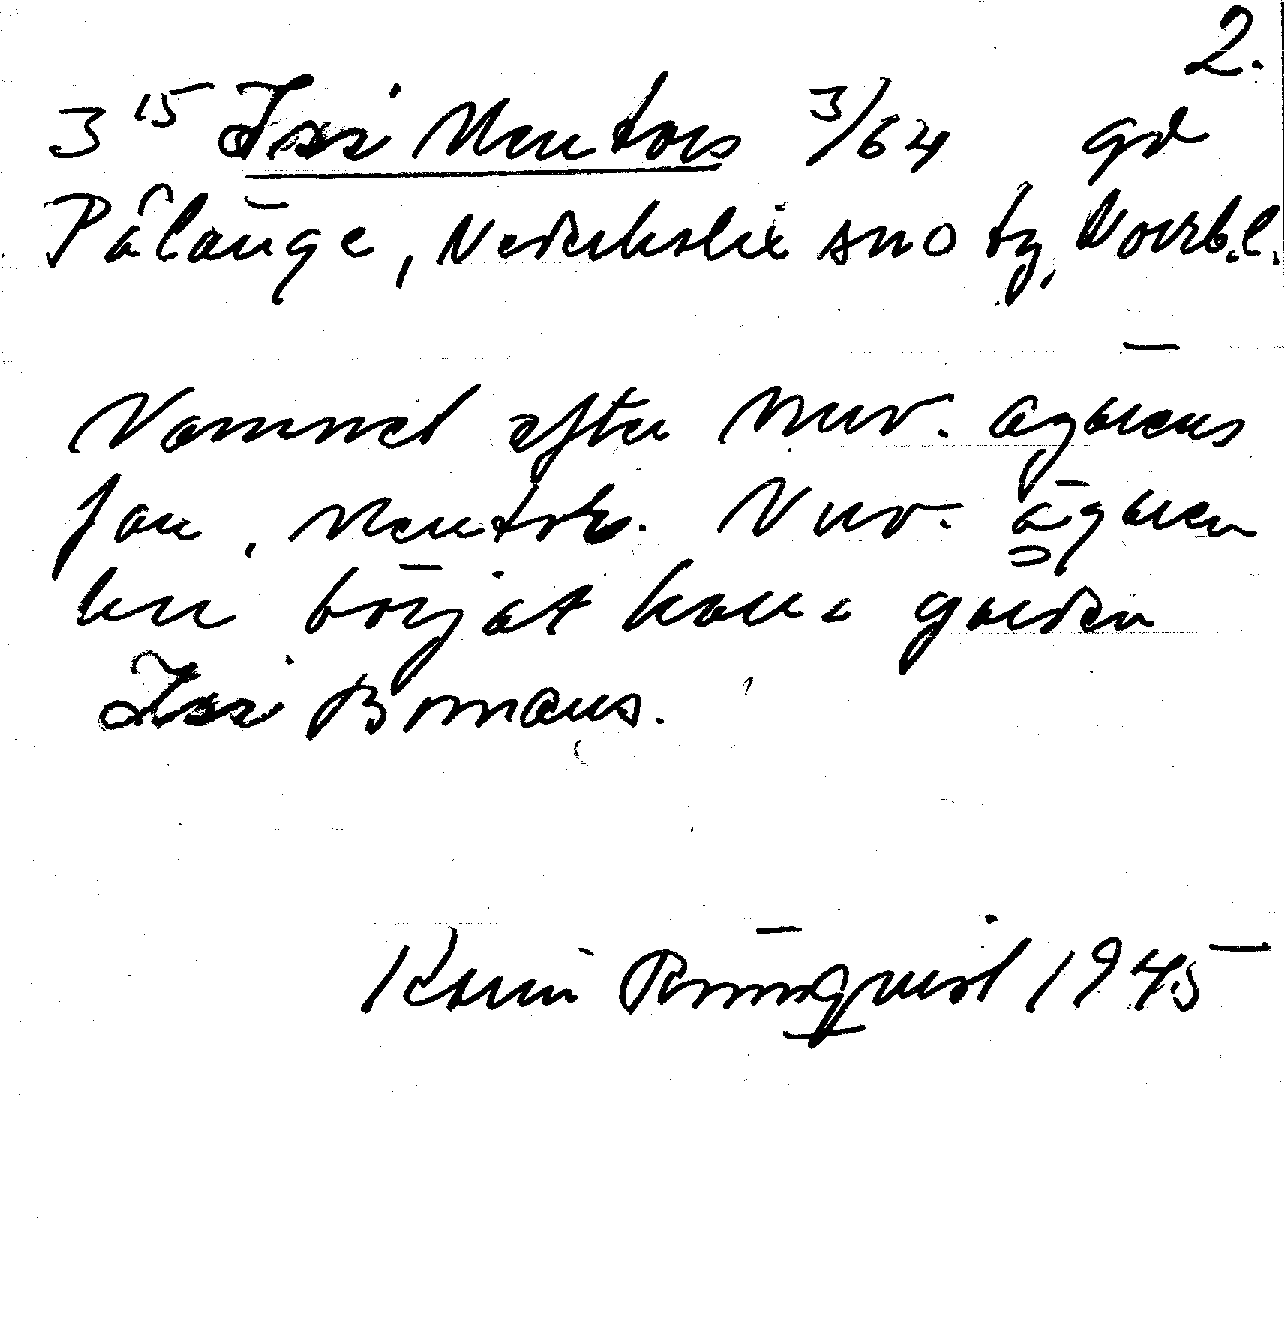 2.
3 15 Mentors 3/64 gd
Pålänge, Nederkalix sn o tg, Norrb.l.
Namnet efter nuv. ägarens
far, Mentor. Nuv. ägaren
har börjat kalla gården
Bromans.
Karin Rönnquist 1945